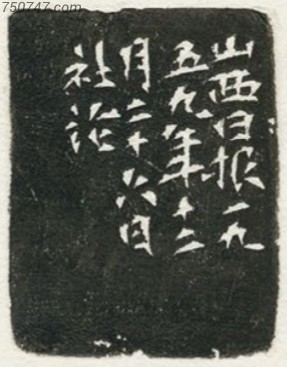 750747.com
山西日报一九
五九年十二
月二十六日
社论